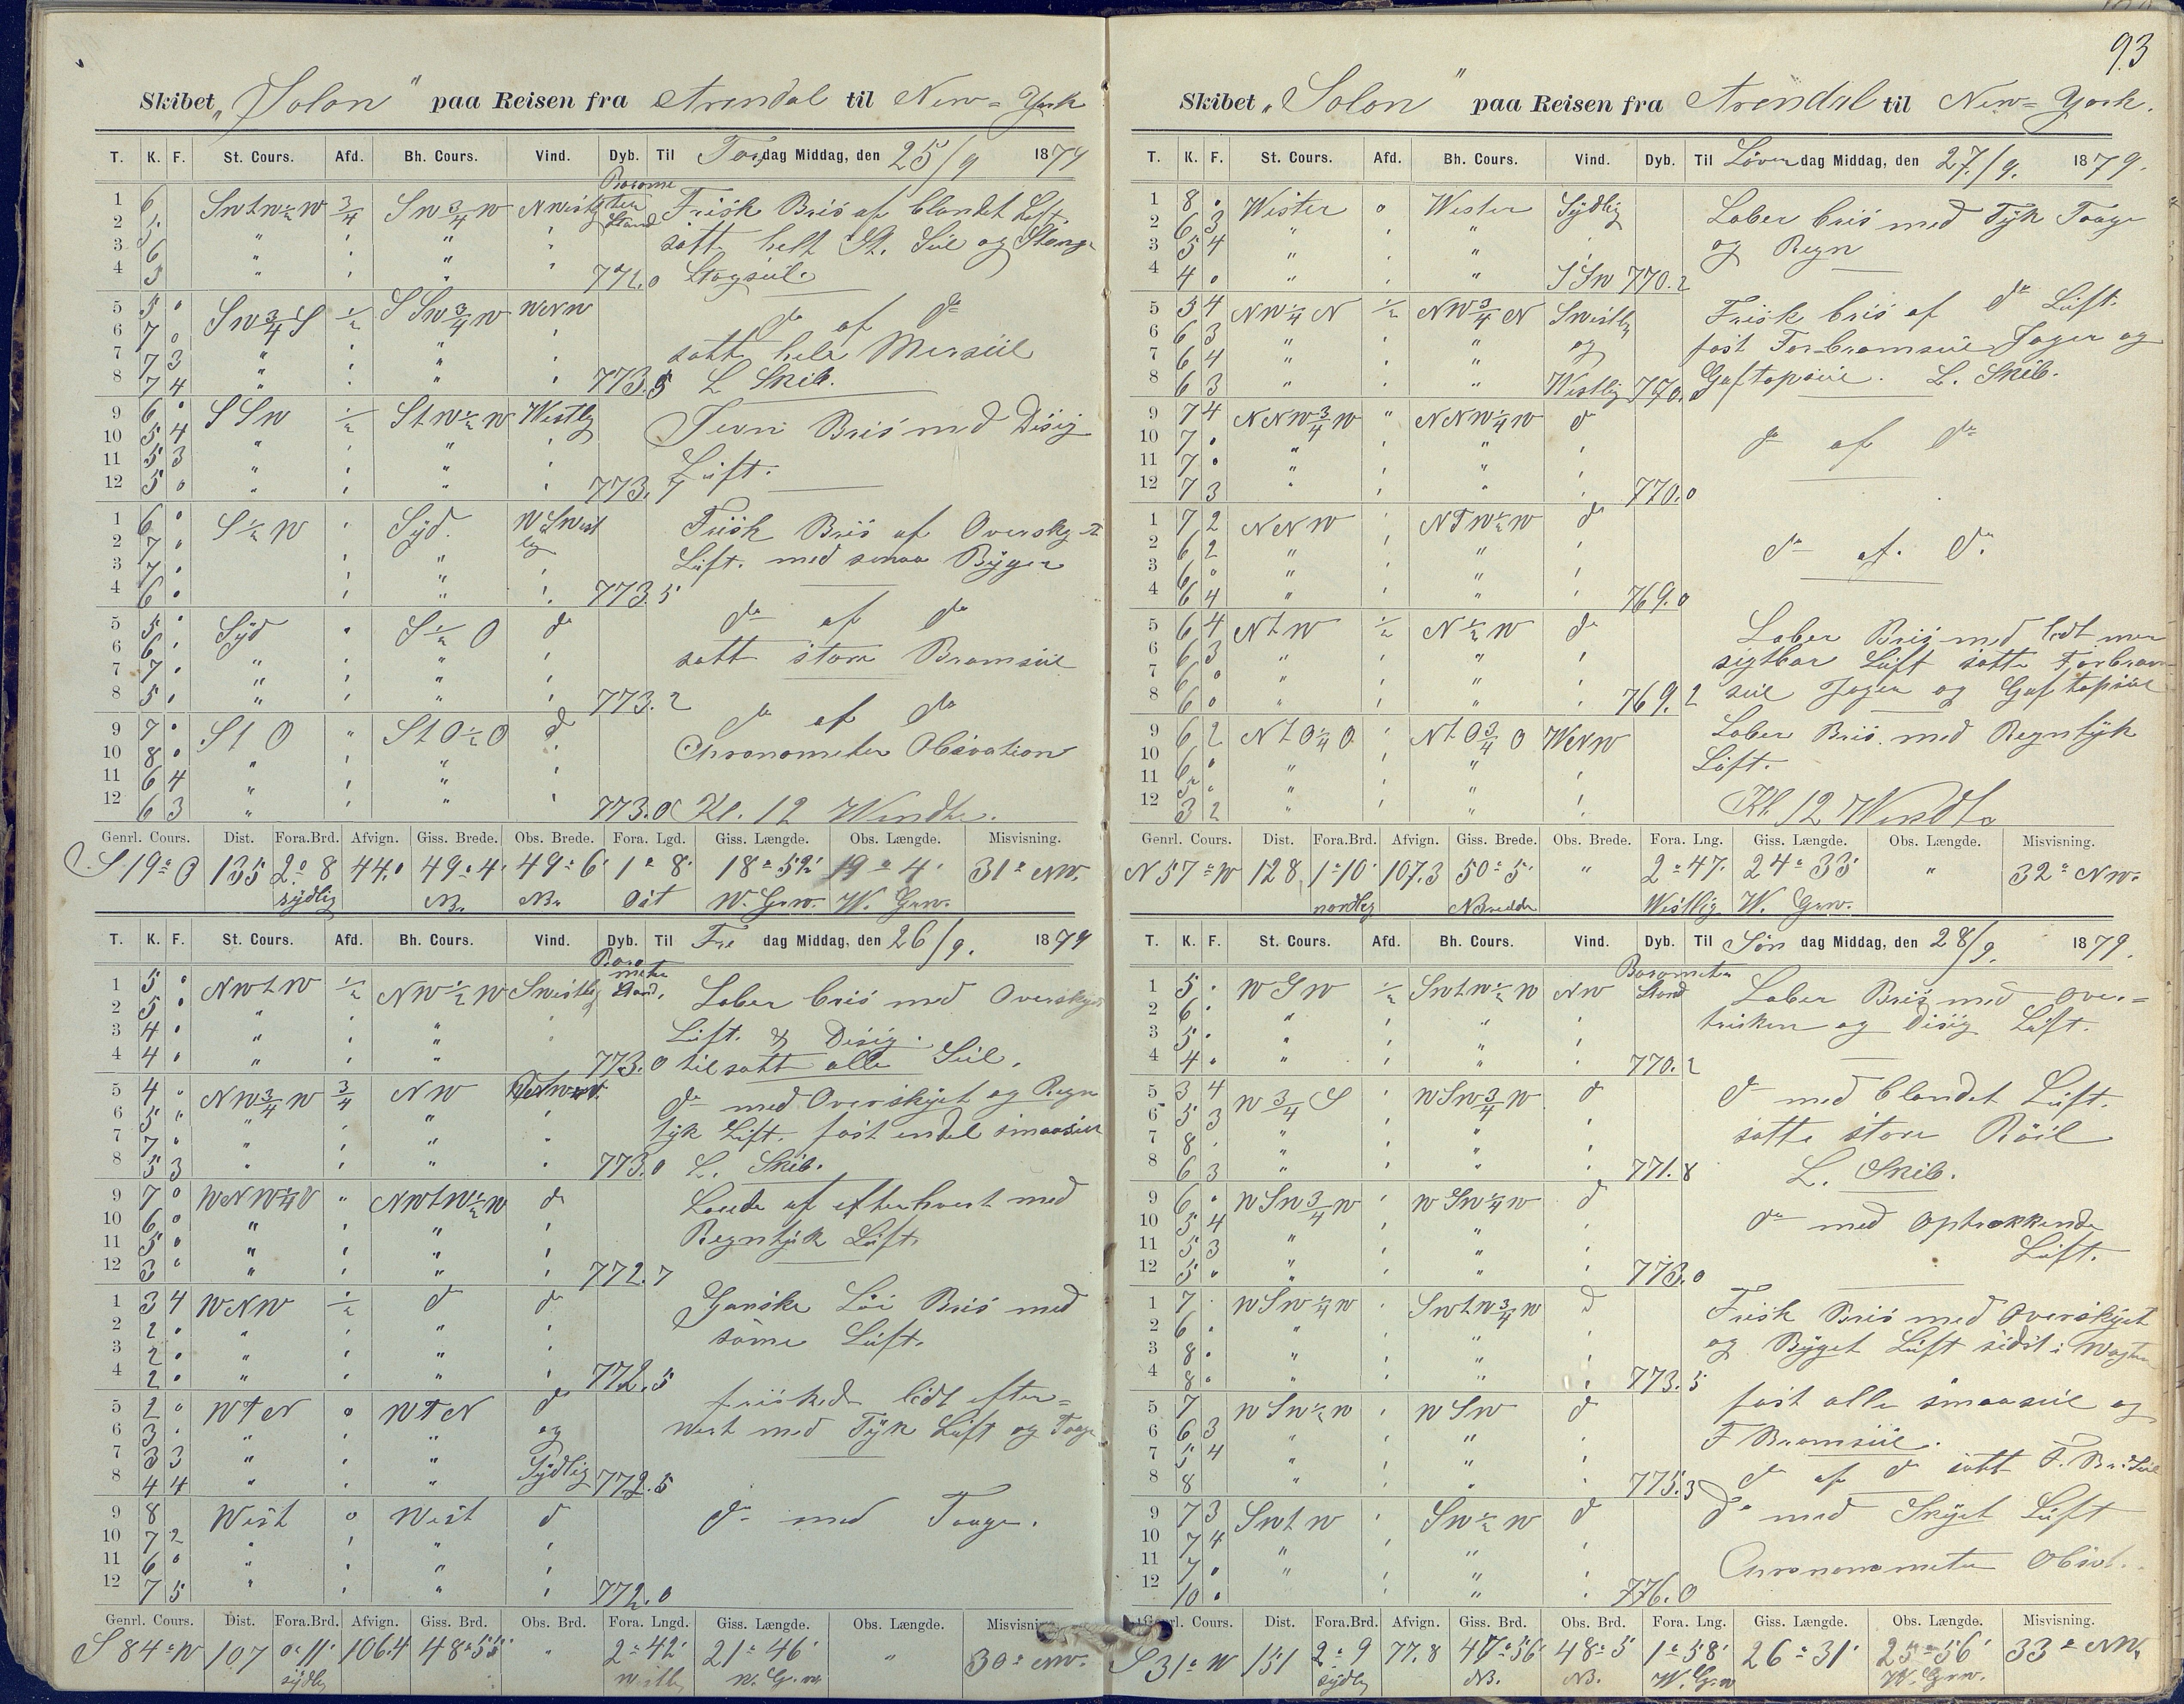 93
Skibet „Solon" paa Reisen fra Arendal til New-York
T. K. F. St. Cours. Afd. Bh. Cours. Vind. Dyb. Til Torsdag Middag, den 25/9 1879
Barometer Stand
1 6 SWtW½W ¾ SW¾W NWestlig Frisk Bris af blandet Luft.
2 5 " " satte helt St. Seil og Stænge
3 6 " "
4 5 " " 772.0 Stagseil.
5 5 0 SW¾S ½ SSW¾W WNW do af do
6 7 0 " "
7 7 3 " " satt hele Merseil
8 7 4 " " 773.5 L Skib.
9 6 0 SSW ½ StW½W Westlig Jevn Bris med Disig
10 5 4 " "
11 5 3 " " Luft.
12 5 0 " " 773.7
1 6 0 S½W Syd. WSWestlig Frisk Bris af Overskyet
2 7 0 "
3 7 0 " Luft. med smaa Byger
4 6 0 " 773.5
5 5 0 Syd " S½O do do af do
6 6 " "
7 7 " " satt store Bramseil
8 5 " " 773.2
9 7 0 StO " StO½O do do af do
10 8 0 " " Chronometer Obsevation
11 6 4 " "
12 6 3 " " 773.0 Kl. 12 Wendte.
Genrl. Cours. Dist. Fora.Brd. Afvign. Giss. Brede. Obs. Brede. Fora. Lgd. Giss. Længde. Obs. Længde. Misvisning.
S 19° O 135 2° 8 44. 49° 4' 49° 6' 1° 8' 18° 52' 19° 4' 31° NW.
sydlig NBr NBr Ost W. Grw. W. Grw.
T. K. F. St. Cours. Afd. Bh. Cours. Vind. Dyb. Til Fredag Middag, den 26/9. 1879
Barometer Stand.
1 5 0 NWtW ½ NW½W SWestlig Laber bris med Overskyet
2 5 0 "
3 4 0 " " Luft. & Disig.
4 4 0 " " 773.0 tilsatt alle Seil.
5 4 " NW¾W ¾ NW do med Overskyet og Regn
6 5 " " "
7 7 0 " " tyk Luft. fast endel smaaseil
8 5 3 " " 773.0 L. Skib.
9 7 0 WNW¼N " NWtW½W do Loiede af efterhvert med
10 6 0 " "
11 5 0 " " Regntyk Luft.
12 3 0 " " 772.7
1 3 4 WNW ½ do do Ganske Löi Bris med
2 2 0 " "
3 2 0 " " same Luft.
4 2 0 " " 772.5
5 2 0 WTN 0 WTN do friskede lidt efter-
6 3 " " og
7 3 3 " " wert med Tyk Luft og Taage
8 4 4 " " Sydlig 772.5
9 8 West 0 West do do med Taage.
10 7 2 " "
11 6 0 " "
12 7 5 " " 772.0
Genrl. Cours. Dist. Fora.Brd. Afvign. Giss. Brd. Obs. Brd. Fora. Lngd. Giss. Længde. Obs. Længde. Misvisning.
S 84° W 107 0° 11' 106.4 48° 55' " 2° 42' 21° 46' " 30° NW.
sydlig Westlig W. Grw
Skibet „Solon" paa Reisen fra Arendal til New-York.
T. K. F. St. Cours. Afd. Bh. Cours. Vind. Dyb. Til Löverdag Middag, den 27./9. 1879.
1 8 0 Wester 0 Wester Sydlig Laber bris med Tyk Taage
2 6 3 " "
3 5 4 " " og Regn
4 4 0 " " SSW 770.2
5 5 4 NW¼N ½ NW¾N SWestlig Frisk bris af do Luft.
6 6 3 " " og fast Forbramseil Jager og
7 6 4 " "
8 6 3 " " Westlig 770. Gaftopseil. L. Skib.
9 7 4 NNW¾W " NNW¼W do do af do
10 7 0 " "
11 7 0 " "
12 7 3 " " 770.0
1 7 2 NNW NTW½W do do af. do.
2 6 2 " "
3 6 0 " "
4 6 4 " " 769.0
5 6 4 NtW ½ N½W do Laber Bris med lidt mer
6 6 3 " " sigtbar Luft satte Forbram
7 6 0 " "
8 6 0 " " 769.2 seil Jager og Gaftopseil
9 6 2 NtO¼O NtO¾O WNW Laber Bris. med Regntyk
10 6 0 " "
11 6 " " Luft.
12 3 2 " " Kl 12 Wendte
Genrl. Cours. Dist. Fora.Brd. Afvign. Giss. Brede. Obs. Brede. Fora. Lng. Giss. Længde. Obs. Længde. Misvisning.
N 57° W 128 1° 10' 107.3 50° 5' " 2° 47' 24° 33' " 32° NW.
nordlig NBredde Westlig W. Grw.
T. K. F. St. Cours. Afd. Bh. Cours. Vind. Dyb. Til Sön dag Middag, den 28/9. 1879.
Barometer Stand
1 5 ½ SWtW½W NW Laber Bris med over-
2 6 " "
3 5 " " trukken og Disig Luft.
4 4 0 " " 770.2
5 3 4 W¾S WSW¾W do do med blandet Luft.
6 5 3 " "
7 8 " " satte store Röil
8 6 3 " " 771.8 L. Skib.
9 6 0 WSW¾W WSW¼W do do med optrækkende
10 5 4 " "
11 5 3 " " Luft.
12 5 0 " " 773.0
1 7 WSW¼W SWtW¾W do Frisk Bris med Overskyet
2 6 " "
3 8 " " og Byget Luft sidst i Wagten
4 8 " " 773.5
5 7 WSW½W WSW do fast alle smaaseil og
6 6 3 " " F Bramseil.
7 5 4 " "
8 8 " " 775.3 do af do satt F. Br. Seil
9 7 3 SWtW SW½W do do med Skyet Luft
10 7 4 " "
11 7 0 " " Chronometer Obsvt.
12 10 0 " 776.0
Cours. Dist. Fora.Brd. Afvign. Giss. Brd. Obs. Brd. Fora. Lng. Giss. Længde. Obs. Længde. Misvisning.
S 31° W 151 2° 9 77.8 47° 56' 48° 5 1° 58' 26° 31' 25° 56' 33° NW.
sydlig NB. NB. W. Grw W. Grw.